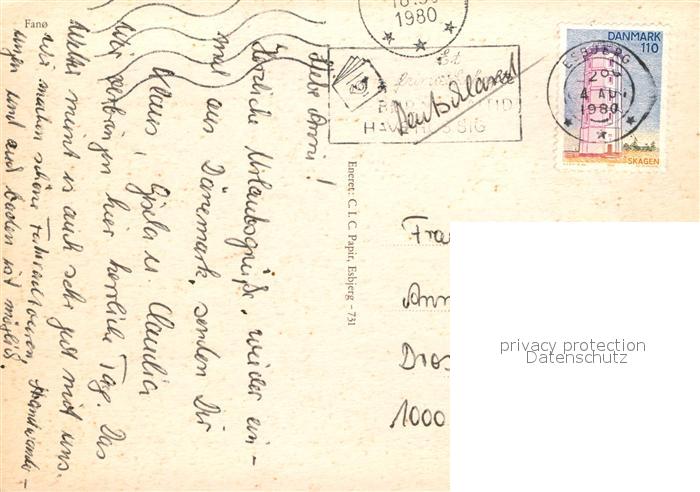 Fanø
Liebe Anni!
Herzliche Urlaubsgrüße, wieder ein-
mal aus Dänemark, senden Dir
Klaus, Gisela u. Claudia
Wir verbringen hier herrliche Tage. Das
Wetter meint es auch sehr gut mit uns.
Wir machen schöne Fahrradtouren, Strandwander-
ungen und auch baden ist möglich.
Eneret: C.I.C. Papir, Esbjerg - 731
1980
Et
HAV
SIG
Deutschland
DANMARK
110
SKAGEN
ESBJERG
4 AUG
1980
Fra
Ann
Dros
1000
privacy protection
Datenschutz